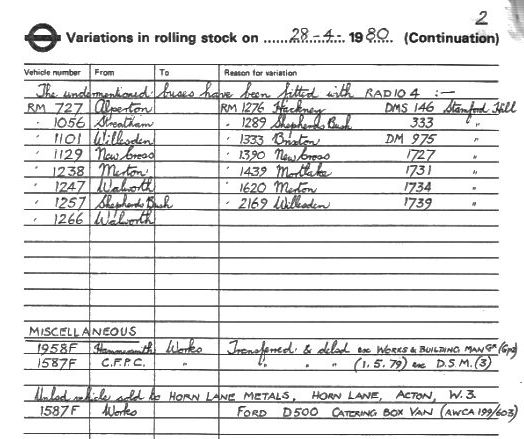 2
Variations in rolling stock on ......28-4-..... 1980. (Continuation)
Vehicle number From To Reason for variation
The undermentioned buses have been fitted with RADIO 4 :—
RM 727 Alperton RM 1276 Hackney DMS 146 Stamford Hill
" 1056 Streatham " 1289 Shepherds Bush 333 "
" 1101 Willesden " 1333 Brixton DM 975 "
" 1129 New Cross " 1390 New Cross 1727 "
" 1238 Merton " 1439 Mortlake 1731 "
" 1247 Walworth " 1620 Merton 1734 "
" 1257 Shepherds Bush " 2169 Willesden 1739 "
" 1266 Walworth
MISCELLANEOUS
1958F Hammersmith Works Transferred & delsd exc WORKS & BUILDING MANGR (Gps)
1587F C.F.P.C. " " " " (1.5.79) exc D.S.M. (3)
Unlsd vehicle sold to HORN LANE METALS, HORN LANE, ACTON, W.3.
1587F Works FORD D500 CATERING BOX VAN (AWCA 199/603)